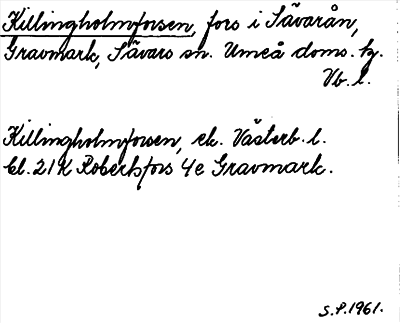 Killingholmforsen, fors i Sävarån,
Gravmark, Sävars sn. Umeå doms. tg.
Vb. l.
Killingholmforsen, ek. Västerb. l.
bl. 21 K Robertsfors 4e Gravmark.
S.P. 1961.